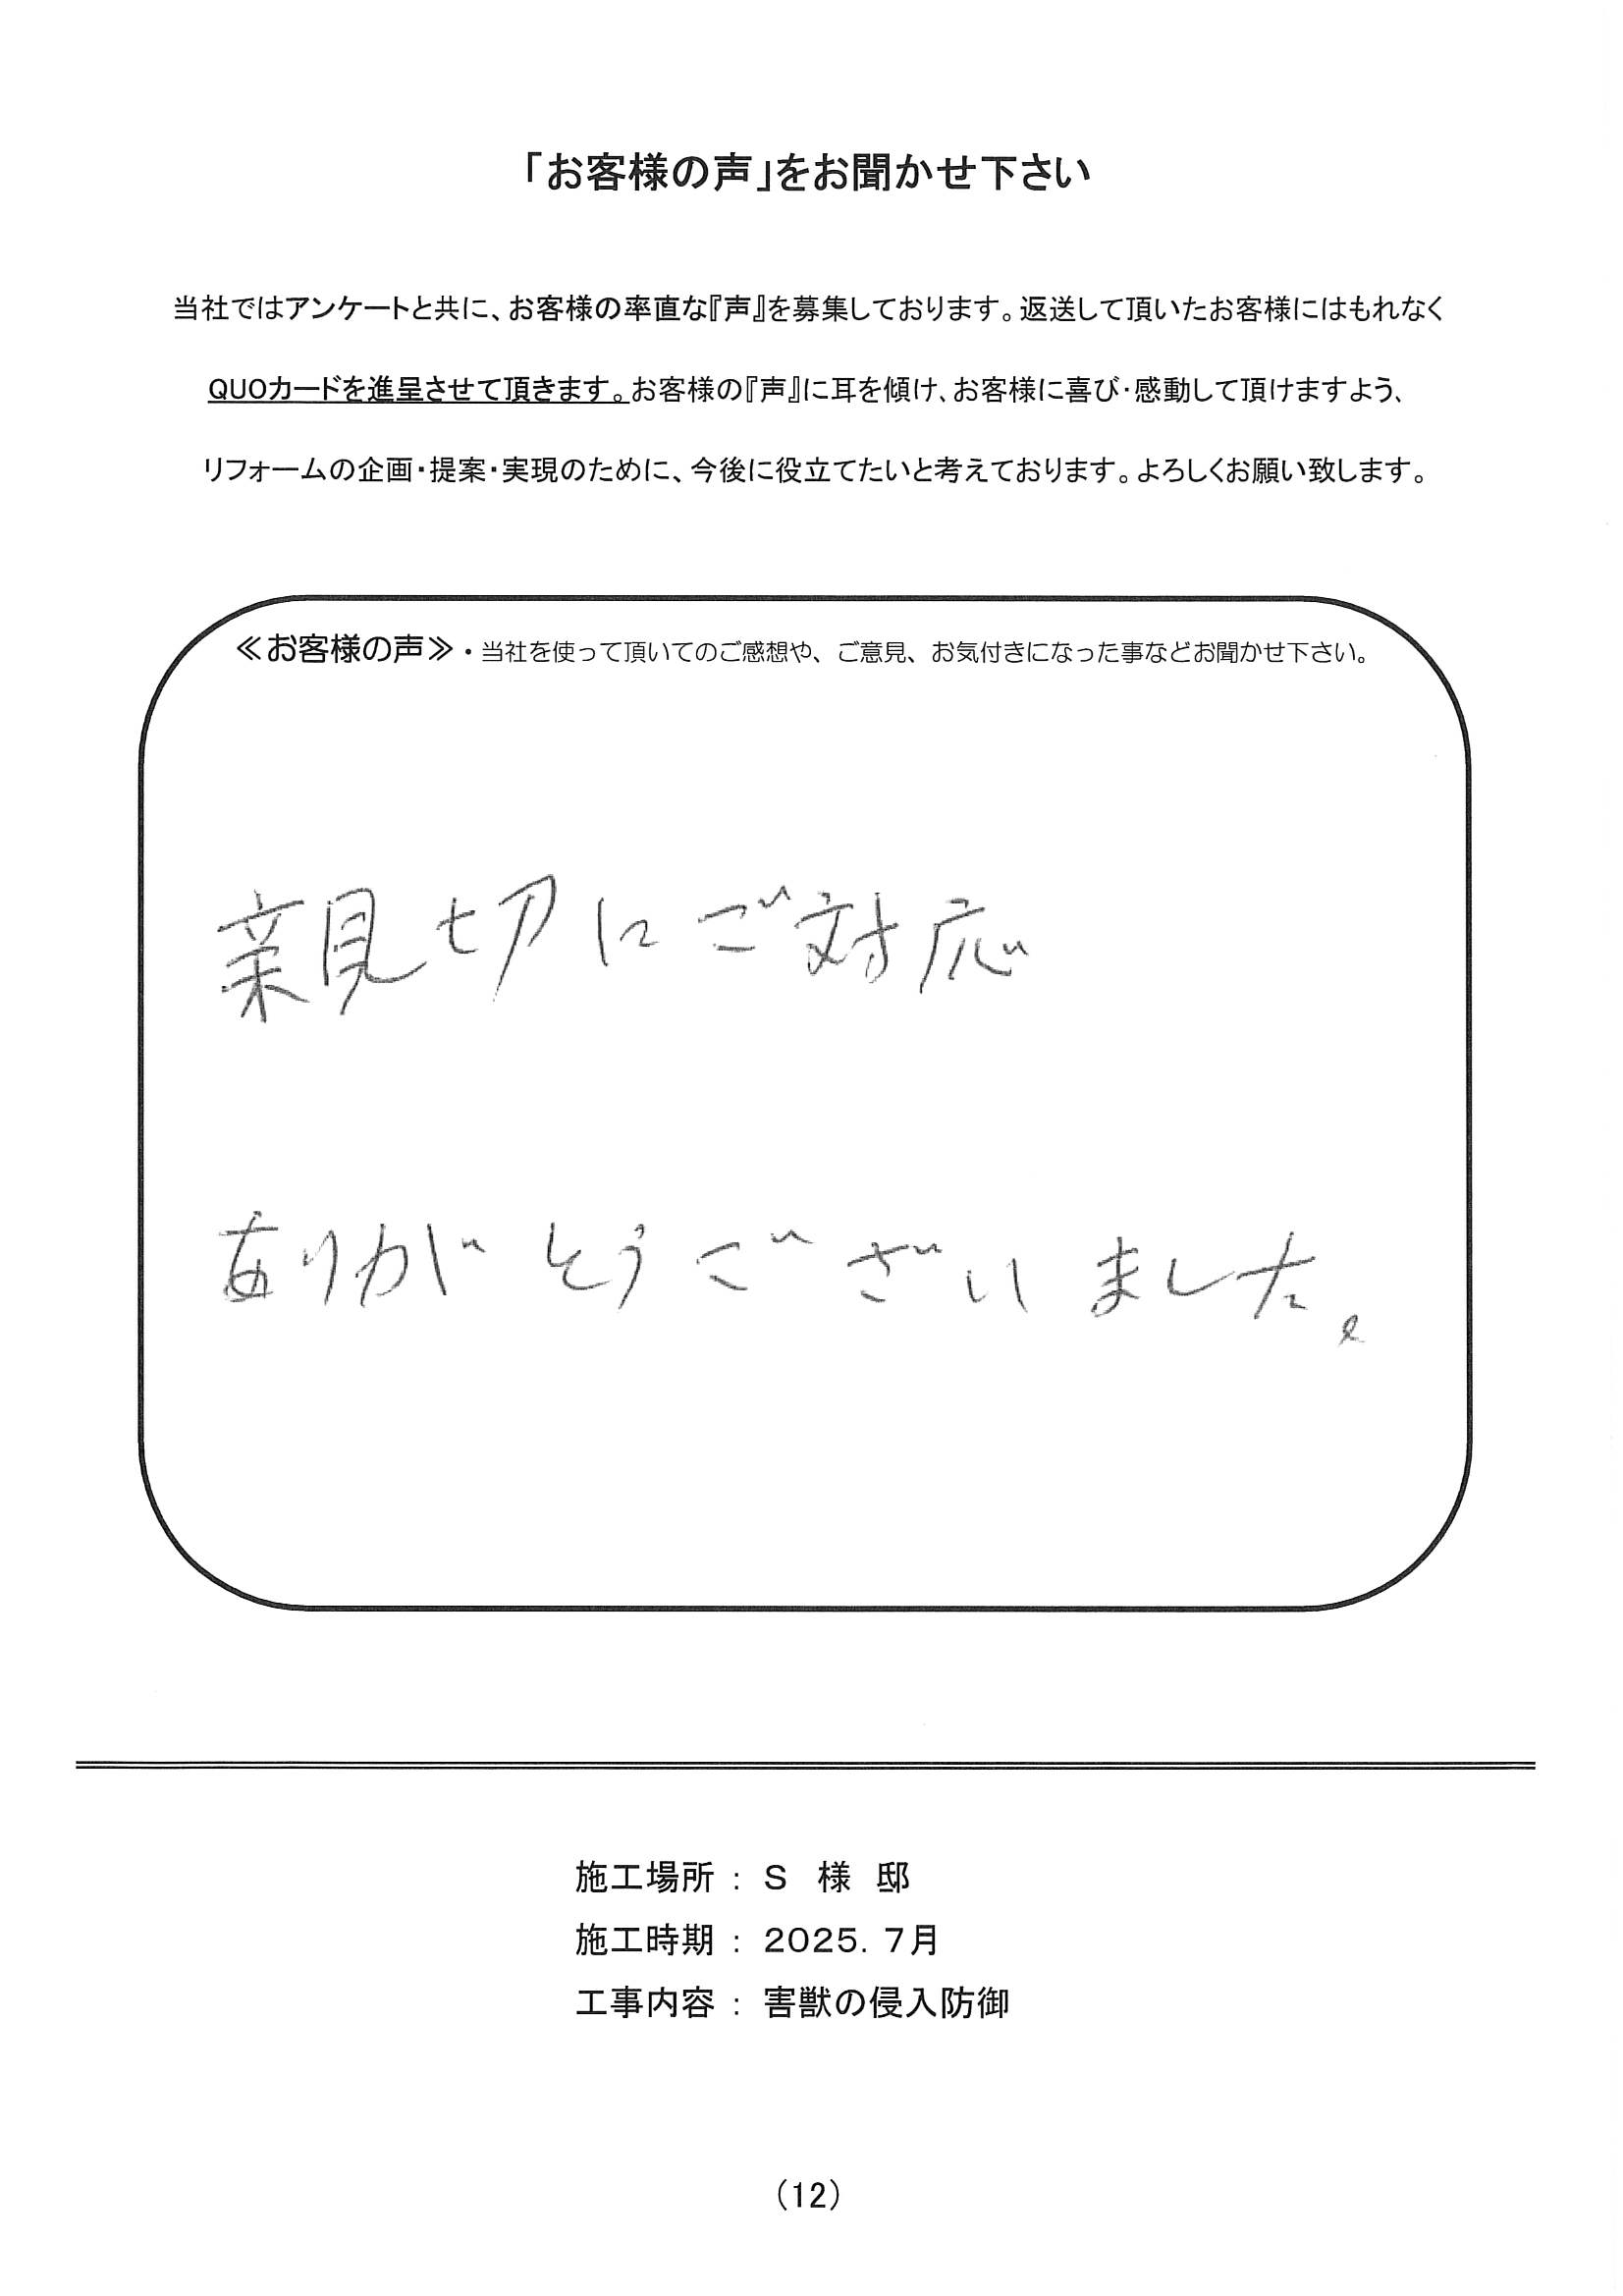 「お客様の声」をお聞かせ下さい
当社ではアンケートと共に、お客様の率直な『声』を募集しております。返送して頂いたお客様にはもれなく
QUOカードを進呈させて頂きます。お客様の『声』に耳を傾け、お客様に喜び・感動して頂けますよう、
リフォームの企画・提案・実現のために、今後に役立てたいと考えております。よろしくお願い致します。
≪お客様の声≫・当社を使って頂いてのご感想や、ご意見、お気付きになった事などお聞かせ下さい。
親切にご対応
ありがとうございました。
施工場所 : S 様 邸
施工時期 : 2025. 7月
工事内容 : 害獣の侵入防御
(12)